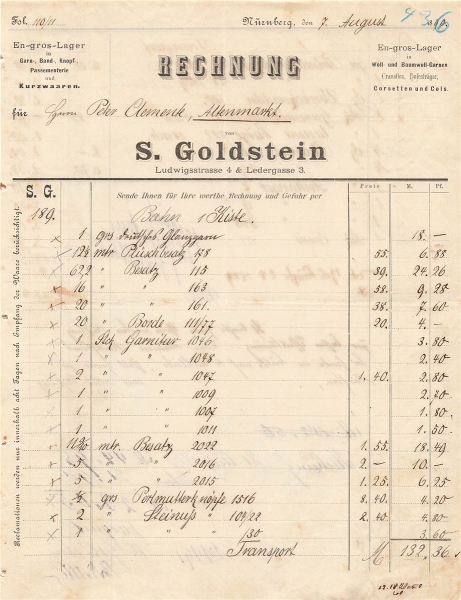 Fol. 110/11
Nürnberg, den 7. August 189
436
En-gros-Lager
in
Garn-, Band-, Knopf-,
Passementerie
und
Kurzwaaren.
RECHNUNG
En-gros-Lager
in
Woll- und Baumwoll-Garnen
Cravatten, Hosenträger,
Corsetten und Cols.
für Herrn Peter Clement, Altenmarkt.
von
S. Goldstein
Ludwigsstrasse 4 & Ledergasse 3.
S. G. Sende Ihnen für Ihre werthe Rechnung und Gefahr per Preis M. Pf.
189. Bahn 1 Kiste.
1 grs deutsches Glanzgarn 18. —
12½ mtr Plüschbesatz 178 55. 6. 88
62,2 " Besatz 115 39. 24. 26
16 " " 163 58. 9. 28
20 " " 161. 38. 7. 60
20 " Borde 111/77 20. 4. —
1 Stck Garnitur 1046 3. 80
1 " " 1048 2. 40
2 " " 1047 1. 40. 2. 80
1 " " 1009 2. 70
1 " " 1007 1. 80
1 " " 1011 1. 50
mtr. Besatz 2022 1. 55. 18. 49
5 " " 2016 2. — 10. —
5 " " 2015 1. 25 6. 25
½ grs Perlmutterknöpfe 1516 8. 40 4. 20
2 " Steinnuß " 109/22 2. 40 4. 80
1 " " 130 3. 60
Transport M 132. 36
Reclamationen werden nur innerhalb acht Tagen nach Empfang der Waare berücksichtigt.